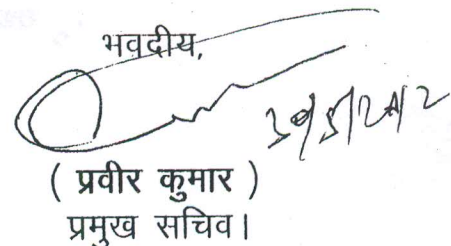 भवदीय,
30/5/2012
( प्रवीर कुमार )
प्रमुख सचिव।